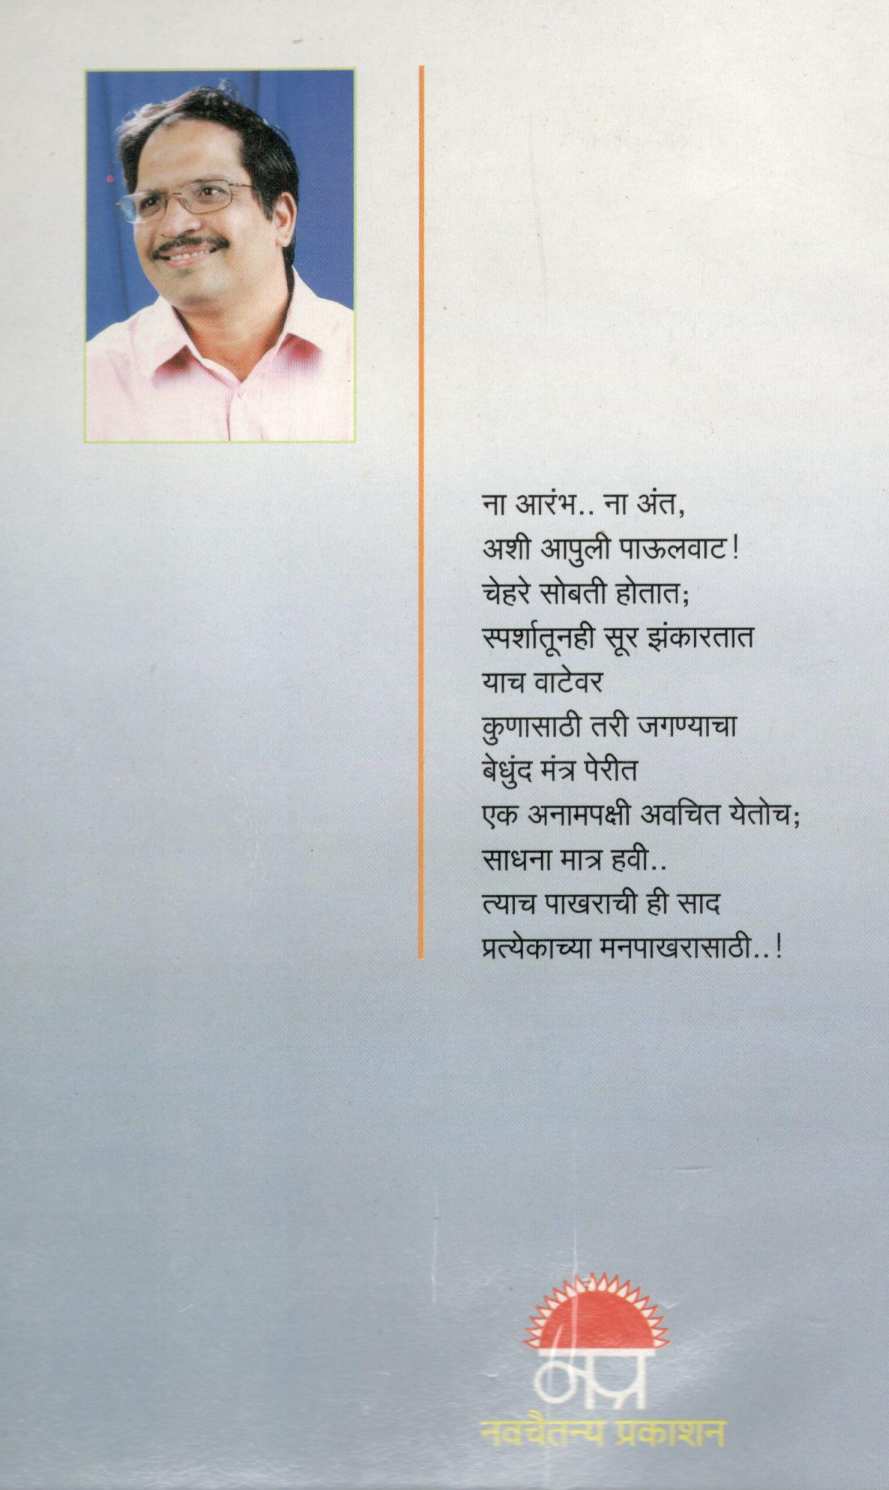 ना आरंभ.. ना अंत,
अशी आपुली पाऊलवाट!
चेहरे सोबती होतात;
स्पर्शातूनही सूर झंकारतात
याच वाटेवर
कुणासाठी तरी जगण्याचा
बेधुंद मंत्र पेरीत
एक अनामपक्षी अवचित येतोच;
साधना मात्र हवी..
त्याच पाखराची ही साद
प्रत्येकाच्या मनपाखरासाठी..!
नप्र
नवचैतन्य प्रकाशन